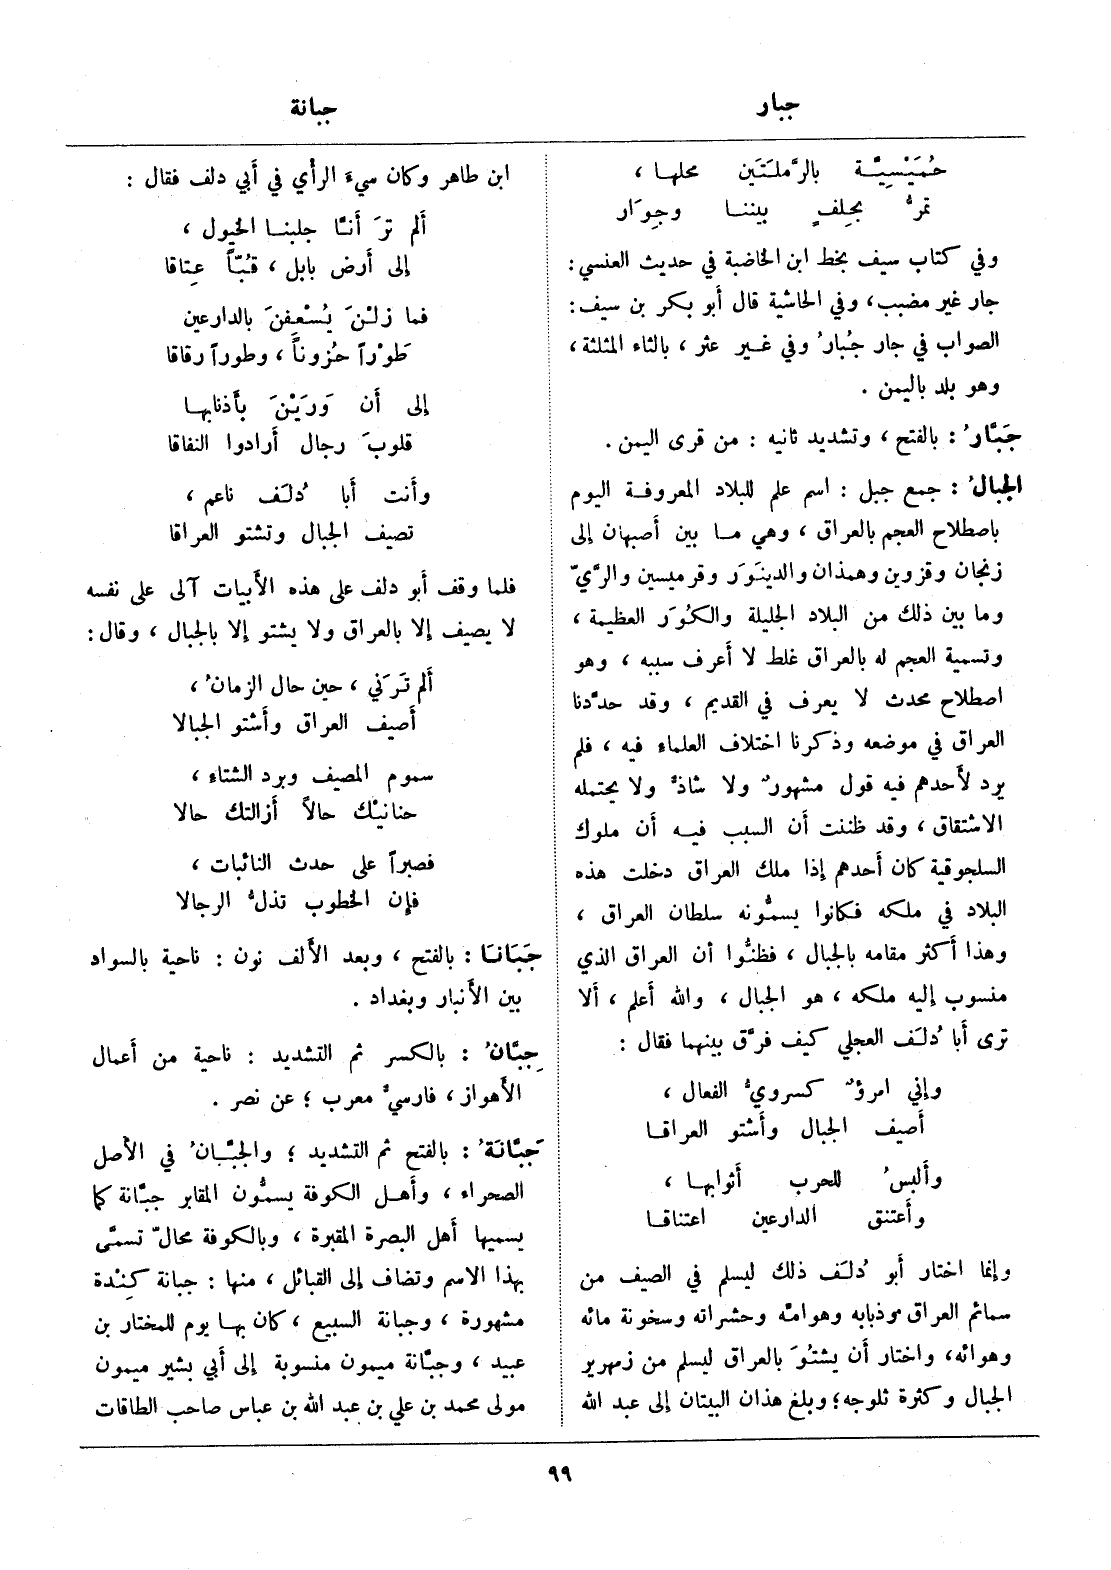 جبار
جبانة
حُمَيْسِيَّة بالرَّملَتَين محلها ،
تمرُّ بحِلفٍ بيننا وجِوَار
وفي كتاب سيف بخط ابن الخاضبة في حديث العنسي :
جار غير مضبب ، وفي الحاشية قال أبو بكر بن سيف :
الصواب في جار جُبارُ وفي غير عثر ، بالثاء المثلثة ،
وهو بلد باليمن .
جَبَّارُ : بالفتح ، وتشديد ثانيه : من قرى اليمن .
الجبالُ : جمع جبل : اسم علم للبلاد المعروفة اليوم
باصطلاح العجم بالعراق ، وهي ما بين أصبهان إلى
زنجان وقزوين وهمذان والدينَوَر وقرميسين والرَّيّ
وما بين ذلك من البلاد الجليلة والكُوَر العظيمة ،
وتسمية العجم له بالعراق غلط لا أعرف سببه ، وهو
اصطلاح محدث لا يعرف في القديم ، وقد حدَّدنا
العراق في موضعه وذكرنا اختلاف العلماء فيه ، فلم
يرد لأحدهم فيه قول مشهورٌ ولا شاذٌّ ولا يحتمله
الاشتقاق ، وقد ظننت أن السبب فيه أن ملوك
السلجوقية كان أحدهم إذا ملك العراق دخلت هذه
البلاد في ملكه فكانوا يسمُّونه سلطان العراق ،
وهذا أكثر مقامه بالجبال ، فظنُّوا أن العراق الذي
منسوب إليه ملكه ، هو الجبال ، والله أعلم ، ألا
ترى أبا دُلَف العجلي كيف فرَّق بينهما فقال :
وإني امرؤٌ كسرويُّ الفعال ،
أصيف الجبال وأشتو العراقا
وألبسُ للحرب أثوابها ،
وأعتنق الدارعين اعتناقا
وإنما اختار أبو دُلَف ذلك ليسلم في الصيف من
سمائم العراق وذبابه وهوامّه وحشراته وسخونة مائه
وهوائه ، واختار أن يشتُوَ بالعراق ليسلم من زمهرير
الجبال وكثرة ثلوجه ؛ وبلغ هذان البيتان إلى عبد الله
ابن طاهر وكان سيءَ الرأي في أبي دلف فقال :
ألم ترَ أنّا جلبنا الخيول ،
إلى أرض بابل ، قُبّاً عِتاقا
فما زلْنَ يُسْعِفنَ بالدارعين
طَوْراً حُزوناً ، وطوراً رقاقا
إلى أن وَرَيْنَ بأذنابها
قلوبَ رجال أرادوا النفاقا
وأنت أبا دُلَف ناعم ،
تصيف الجبال وتشتو العراقا
فلما وقف أبو دلف على هذه الأبيات آلى على نفسه
لا يصيف إلا بالعراق ولا يشتو إلا بالجبال ، وقال :
ألم تَرَني ، حين حال الزمانُ ،
أصيف العراق وأشتو الجبالا
سموم المصيف وبرد الشتاء ،
حنانيْك حالاً أزالتك حالا
فصبراً على حدث النائبات ،
فإن الخطوب تذلُّ الرجالا
جَبَانَا : بالفتح ، وبعد الألف نون : ناحية بالسواد
بين الأنبار وبغداد .
جِبَّانُ : بالكسر ثم التشديد : ناحية من أعمال
الأهواز ، فارسيٌّ معرب ؛ عن نصر .
جَبَّانَةُ : بالفتح ثم التشديد ؛ والجَبَّانُ في الأصل
الصحراء ، وأهل الكوفة يسمُّون المقابر جبَّانة كما
يسميها أهل البصرة المقبرة ، وبالكوفة محالّ تسمَّى
بهذا الاسم وتضاف إلى القبائل ، منها : جبانة كِنْدة
مشهورة ، وجبانة السبيع ، كان بها يوم للمختار بن
عبيد ، وجبَّانة ميمون منسوبة إلى أبي بشير ميمون
مولى محمد بن علي بن عبد الله بن عباس صاحب الطاقات
٩٩